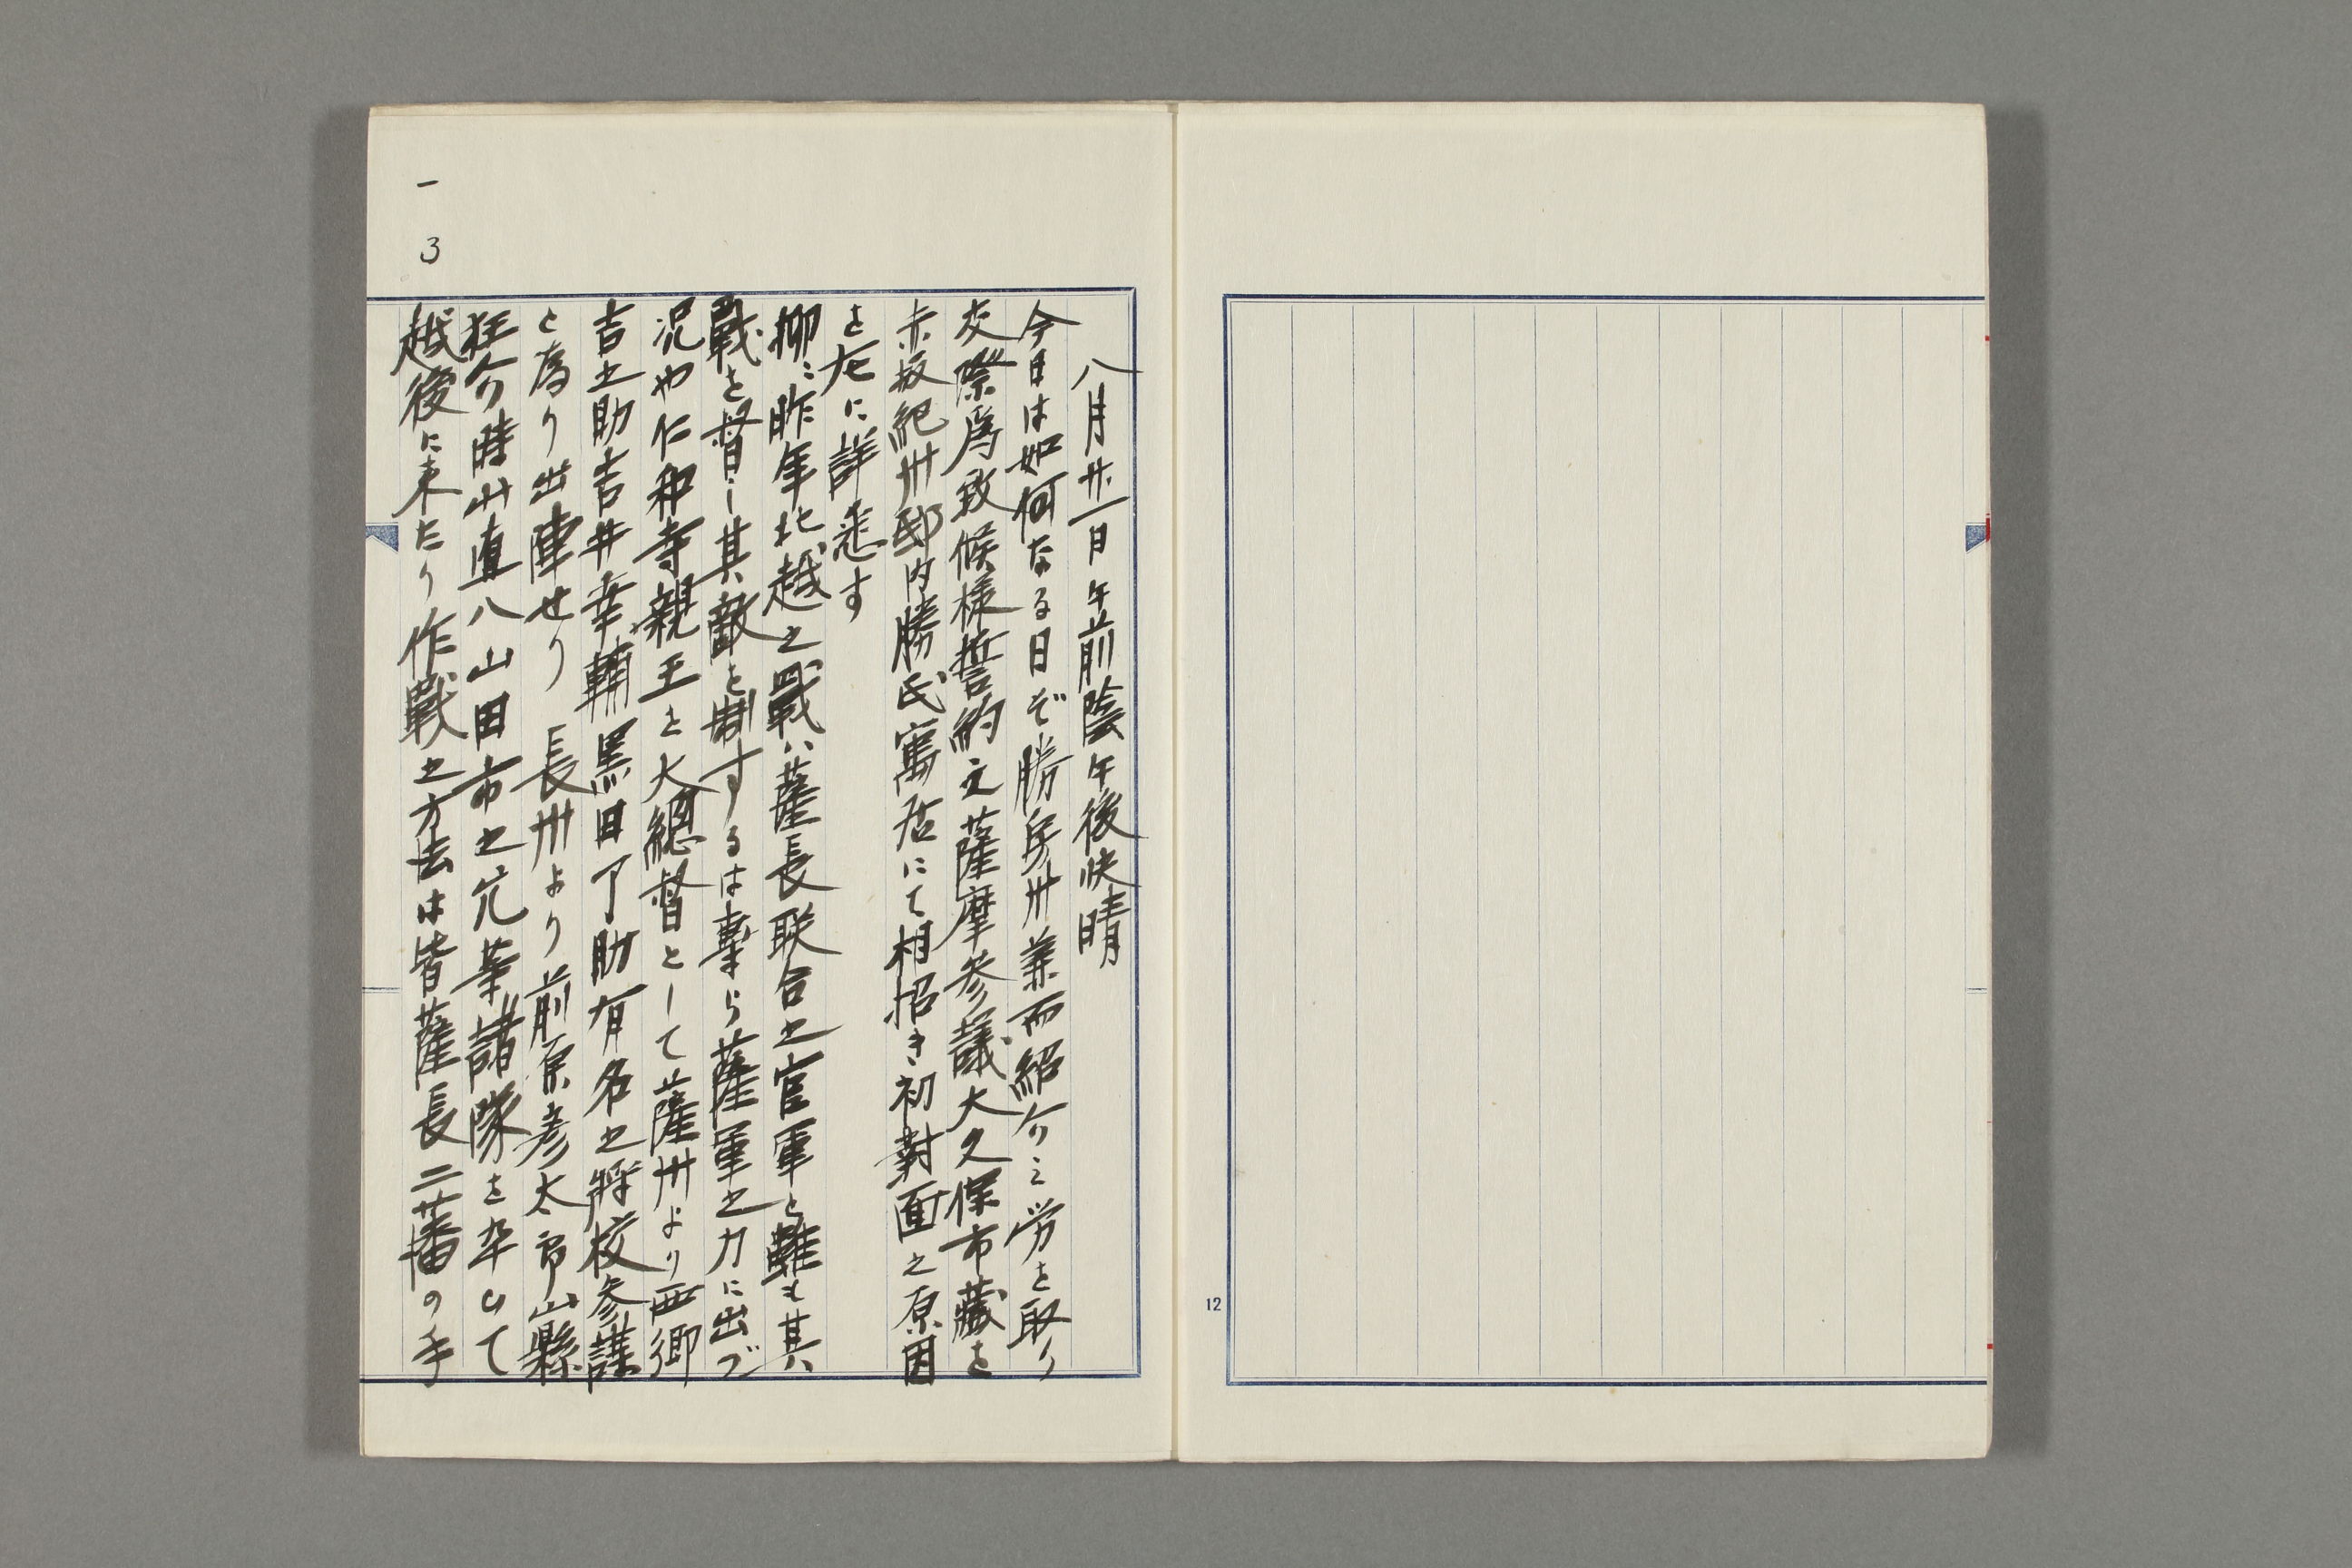 八月廿一日午前陰午後快晴
今日は如何なる日ぞ勝房州兼而紹介之労を取り
友際為致候様誓約之薩摩参議大久保市藏を
赤坂紀州邸内勝氏寓居にて相招き初對面之原因
を左に詳悉す
抑ミ昨年北越之戰ハ薩長联合之官軍と雖も其
戰を督し其敵を制するは專ら薩軍之力に出づ
况や仁和寺親王を大總督として薩州より西郷
吉之助吉井幸輔黒田了助有名之將校参謀
と為り出陣せり 長州より前原彦太郎山縣
狂介時山直八山田市之允等諸隊を卒ひて
越後に来たり作戰之方法は皆薩長二藩の手
一3
12